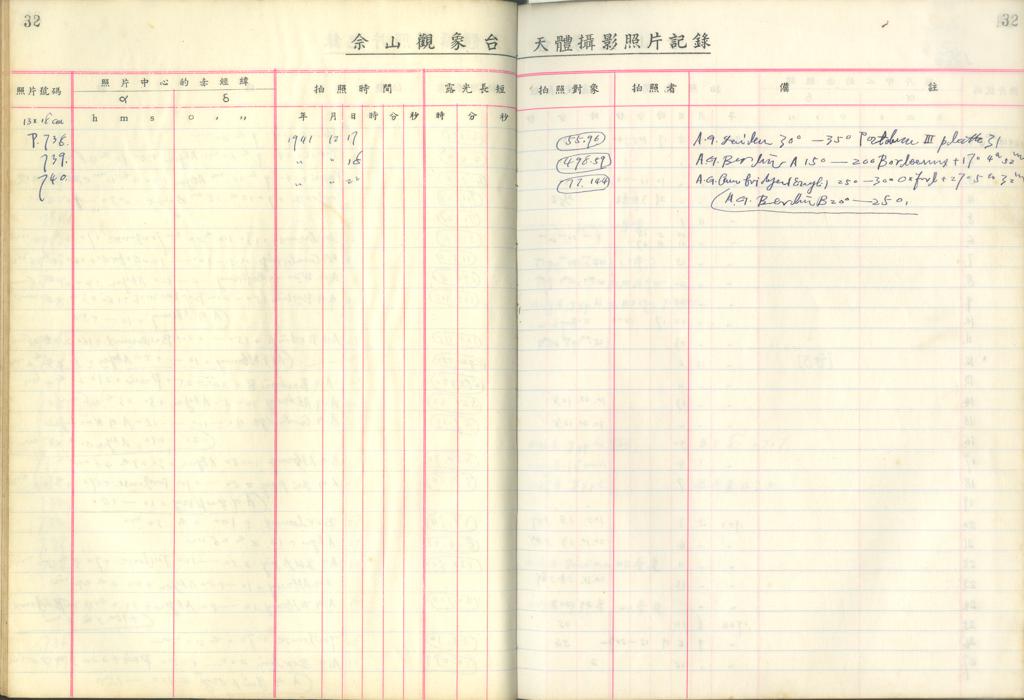 32
32
佘山觀象台 天體攝影照片記錄
照片號碼 照片中心的赤經緯 拍照時間 露光長短 拍照對象 拍照者 備註
α δ
h m s ° ′ ″ 年 月 日 時 分 秒 時 分 秒
13×18 cm
P.738. 1941 12 17 55.96 A.G. Leiden 30° — 35° Potsdam III platte 31
739. " " 18 498.59 A.G. Berlin A 15° — 20°
740. " " 22 77.144 A.G. Cambridge (Engl.) 25° — 30° Oxford + 27°
(A.G. Berlin B 20° — 25°.